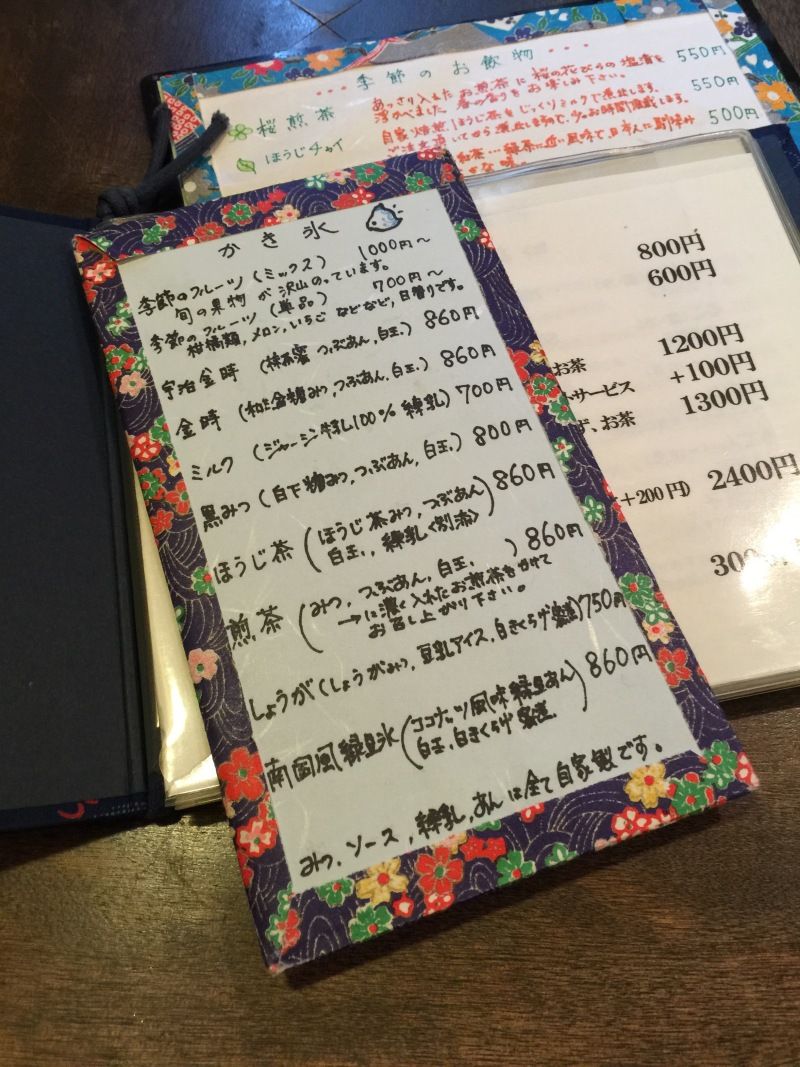 ・・・季節のお飲物・・・
桜煎茶
あっさり入れたお煎茶に桜の花びらの塩漬を 550円
浮かべました 春の香りをお楽しみ下さい。
ほうじチャイ
自家焙煎ほうじ茶をじっくりミルクで煮出します。 550円
500円
かき氷
季節のフルーツ(ミックス) 1000円〜
旬の果物が沢山のっています。
季節のフルーツ(単品) 700円〜
柑橘類,メロン,いちごなどなど,日替りです。
宇治金時(抹茶蜜 つぶあん,白玉) 860円
金時(和三盆糖みつ,つぶあん,白玉) 860円
ミルク(ジャージー牛乳100% 練乳) 700円
黒みつ(白下糖みつ,つぶあん,白玉) 800円
ほうじ茶(ほうじ茶みつ,つぶあん 860円
白玉,練乳<別添>)
煎茶(みつ,つぶあん,白玉,) 860円
→に濃く入れたお煎茶をかけて
お召し上がり下さい。
しょうが(しょうがみつ,豆乳アイス,白きくらげ蜜煮) 750円
南国風緑豆氷(ココナッツ風味緑豆あん 860円
白玉,白きくらげ蜜煮)
みつ,ソース,練乳,あんは全て自家製です。
800円
600円
1200円
お茶 +100円
サービス 1300円
、お茶
+200円) 2400円